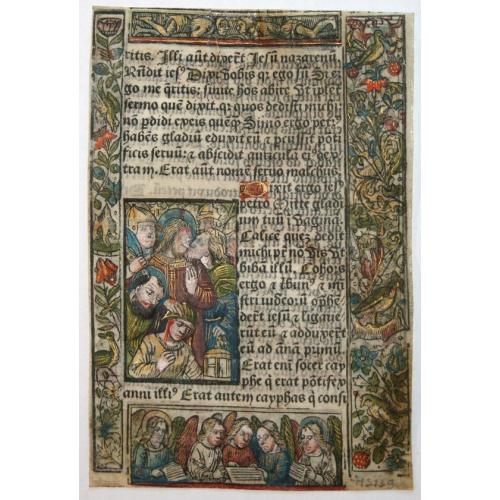 ritis. Illi aūt dixerūt Iesū nazarenū.
Rn̄dit iesꝰ Dixi vobis qꝛ ego sū Si
go me q̄ritis: sinite hos abire Vt īplet
sermo quē dixit. qꝛ quos dedisti michi
nō ꝑdidi ex eis quēꝙ̄ Simō ergo petꝰ
habēs gladiū eduxit eū & ꝑcussit pōti
ficis seruū: & abscidit auriculā eiꝰ dex
tram. Erat aūt nomē seruo malchus.
Dixit ergo iesꝰ
petro Mitte gladi
um tuū
Calicē quē dedit
michi pr̄ nō vis vt
bibā illū. Cohors
ergo & tribunꝰ & mi
stri iudeoꝝ cōphē
derūt iesū & ligaue
rūt eū & adduxerūt
eū ad annā primū
Erat eni socer cay
phe q̄ erat pōtifex
anni illiꝰ Erat autem cayphas q̄ consi